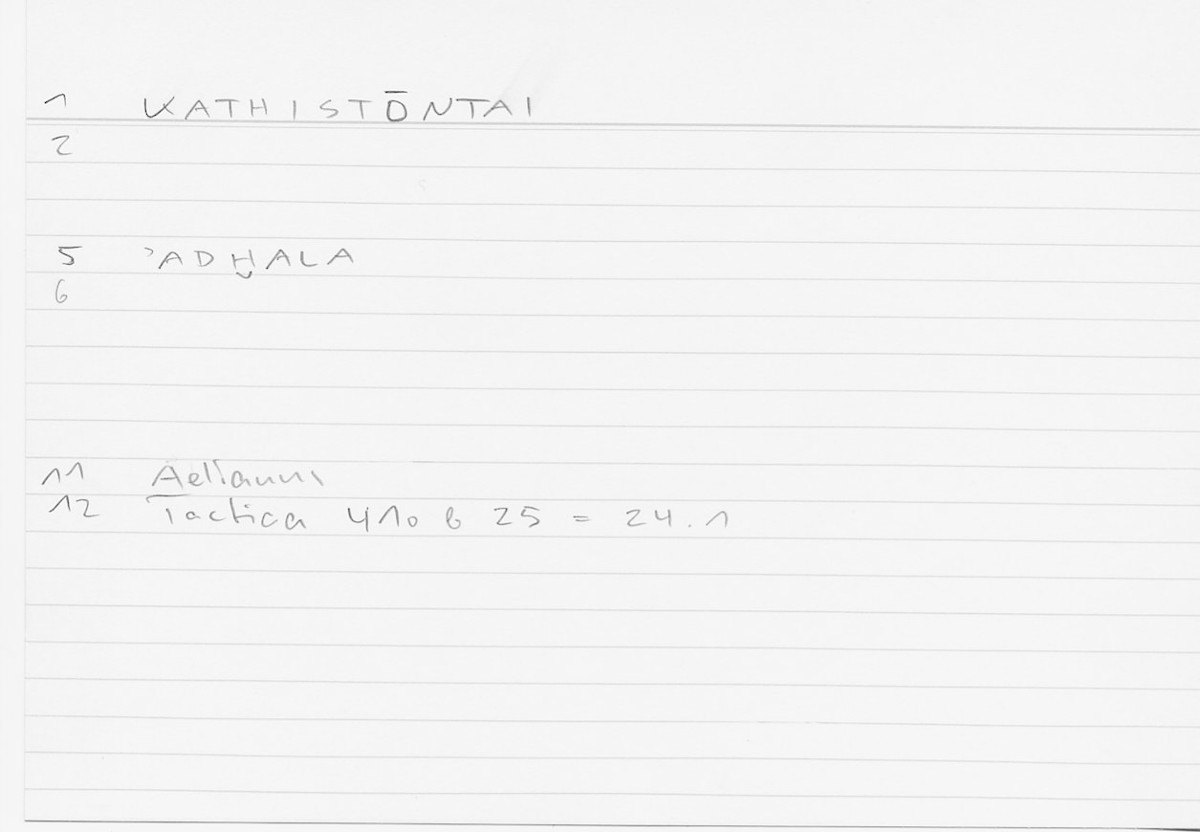 1 KATHISTŌNTAI
2
5 ʾADḪALA
6
11 Aelianus
12 Tactica 410 b 25 = 24.1